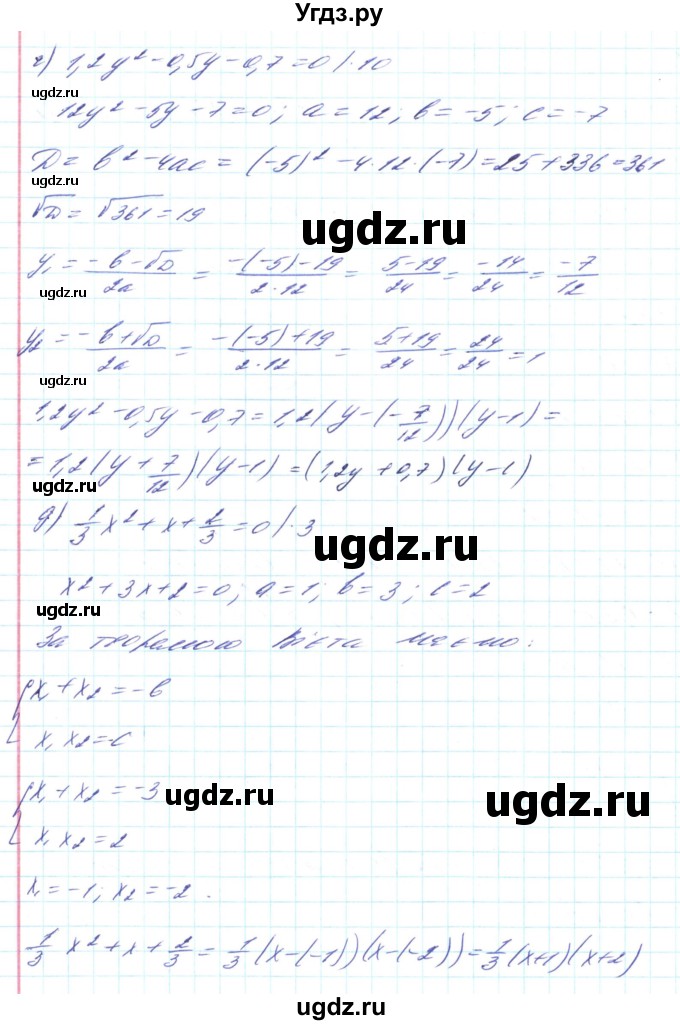 Угдз.ру
г) 1,2y² - 0,5y - 0,7 = 0 | · 10
ugdz.ru
12y² - 5y - 7 = 0; a = 12; b = -5; c = -7
D = b² - 4ac = (-5)² - 4 · 12 · (-7) = 25 + 336 = 361
ugdz.ru
√D = √361 = 19
ugdz.ru
y₁ = (-b - √D)/(2a) = (-(-5) - 19)/(2 · 12) = (5 - 19)/24 = -14/24 = -7/12
ugdz.ru
y₂ = (-b + √D)/(2a) = (-(-5) + 19)/(2 · 12) = (5 + 19)/24 = 24/24 = 1
ugdz.ru
1,2y² - 0,5y - 0,7 = 1,2(y - (-7/12))(y - 1) =
= 1,2(y + 7/12)(y - 1) = (1,2y + 0,7)(y - 1)
ugdz.ru
д) 1/3 x² + x + 2/3 = 0 | · 3
ugdz.ru
x² + 3x + 2 = 0; a = 1; b = 3; c = 2
ugdz.ru
За теоремою Вієта маємо:
{ x₁ + x₂ = -b
ugdz.ru
x₁x₂ = c
{ x₁ + x₂ = -3
ugdz.ru
ugdz.ru
x₁x₂ = 2
x₁ = -1; x₂ = -2.
ugdz.ru
1/3 x² + x + 2/3 = 1/3 (x - (-1))(x - (-2)) = 1/3 (x + 1)(x + 2)
ugdz.ru